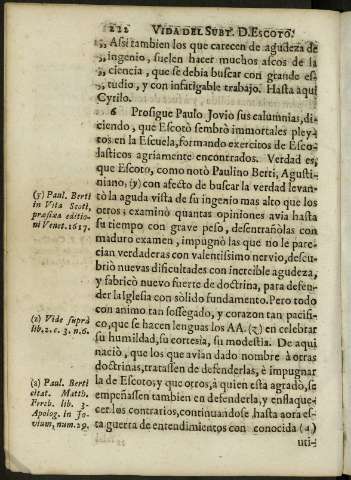 222 VIDA DEL SUBT. D. ESCOTO.
„ Assi tambien los que carecen de agudeza de
„ ingenio, suelen hacer muchos ascos de la
„ ciencia, que se debia buscar con grande es-
„ tudio, y con infatigable trabajo. Hasta aqui
Cyrilo.
6 Prosigue Paulo Jovio sus calumnias, di-
ciendo, que Escotò sembrò immortales pley-
tos en la Escuela, formando exercitos de Esco-
lasticos agriamente encontrados. Verdad es,
que Escoto, como notò Paulino Berti, Agusti-
niano, (y) con afecto de buscar la verdad levan-
tò la aguda vista de su ingenio mas alto que los
otros; examinò quantas opiniones avia hasta
su tiempo con grave peso, desentrañolas con
maduro examen, impugnò las que no le pare-
cian verdaderas con valentissimo nervio, descu-
briò nuevas dificultades con increible agudeza,
y fabricò nuevo fuerte de doctrina, para defen-
der la Iglesia con sòlido fundamento. Pero todo
con animo tan sossegado, y corazon tan pacifi-
co, que se hacen lenguas los AA. (z) en celebrar
su humildad, su cortesia, su modestia. De aqui
naciò, que los que avian dado nombre à otras
doctrinas, tratassen de defenderlas, è impugnar
la de Escoto; y que otros, à quien esta agradò, se
empeñassen tambien en defenderla, y enflaque-
cer los contrarios, continuandose hasta aora es-
ta guerra de entendimientos con conocida (a)
uti-
(y) Paul. Berti
in Vita Scoti,
præfixa editio-
ni Venet. 1617.
(z) Vide suprà
lib. 2. c. 3. n. 6.
(a) Paul. Berti
citat. Matth.
Ferch. lib. 3.
Apolog. in Jo-
vium, num. 29.